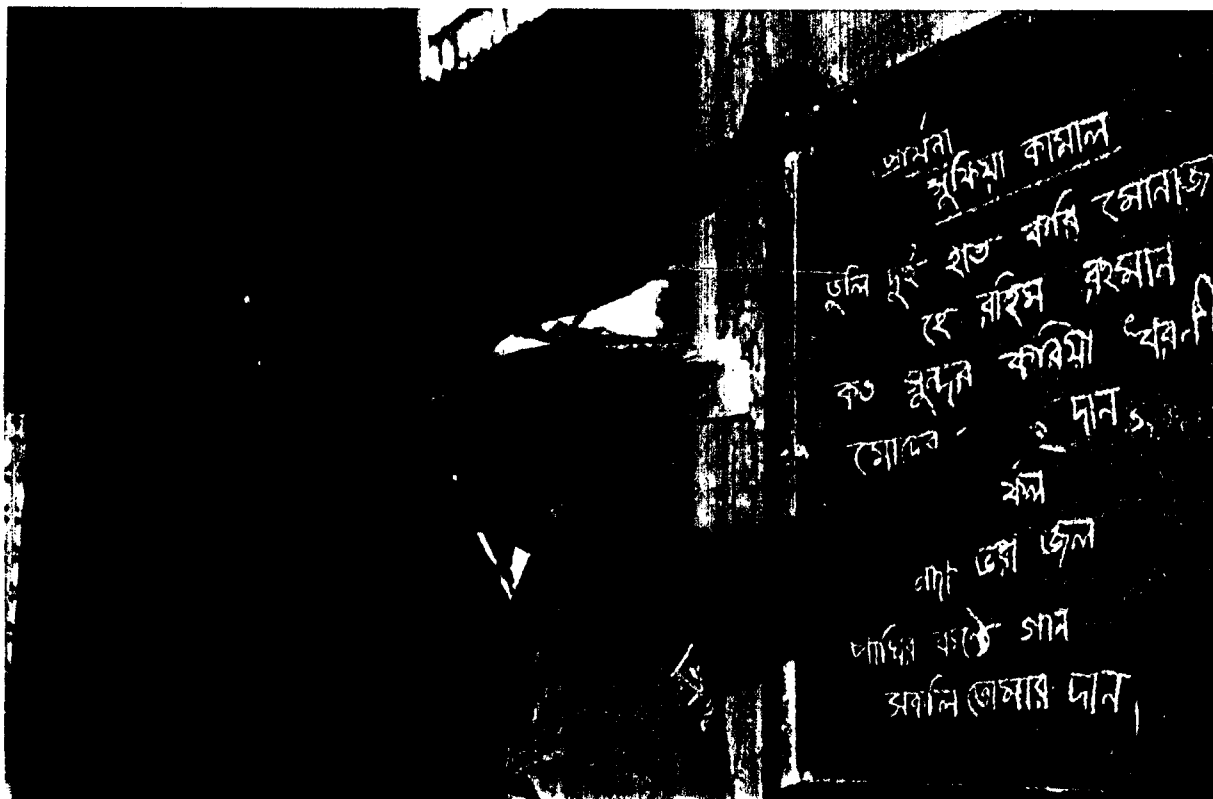 প্রার্থনা
সুফিয়া কামাল
তুলি দুই হাত করি মোনাজ
হে রহিম রহমান
কত সুন্দর করিয়া ধরণী
মোদের দান,
ফল
নদী ভরা জল
পাখির কণ্ঠে গান
সকলি তোমার দান।